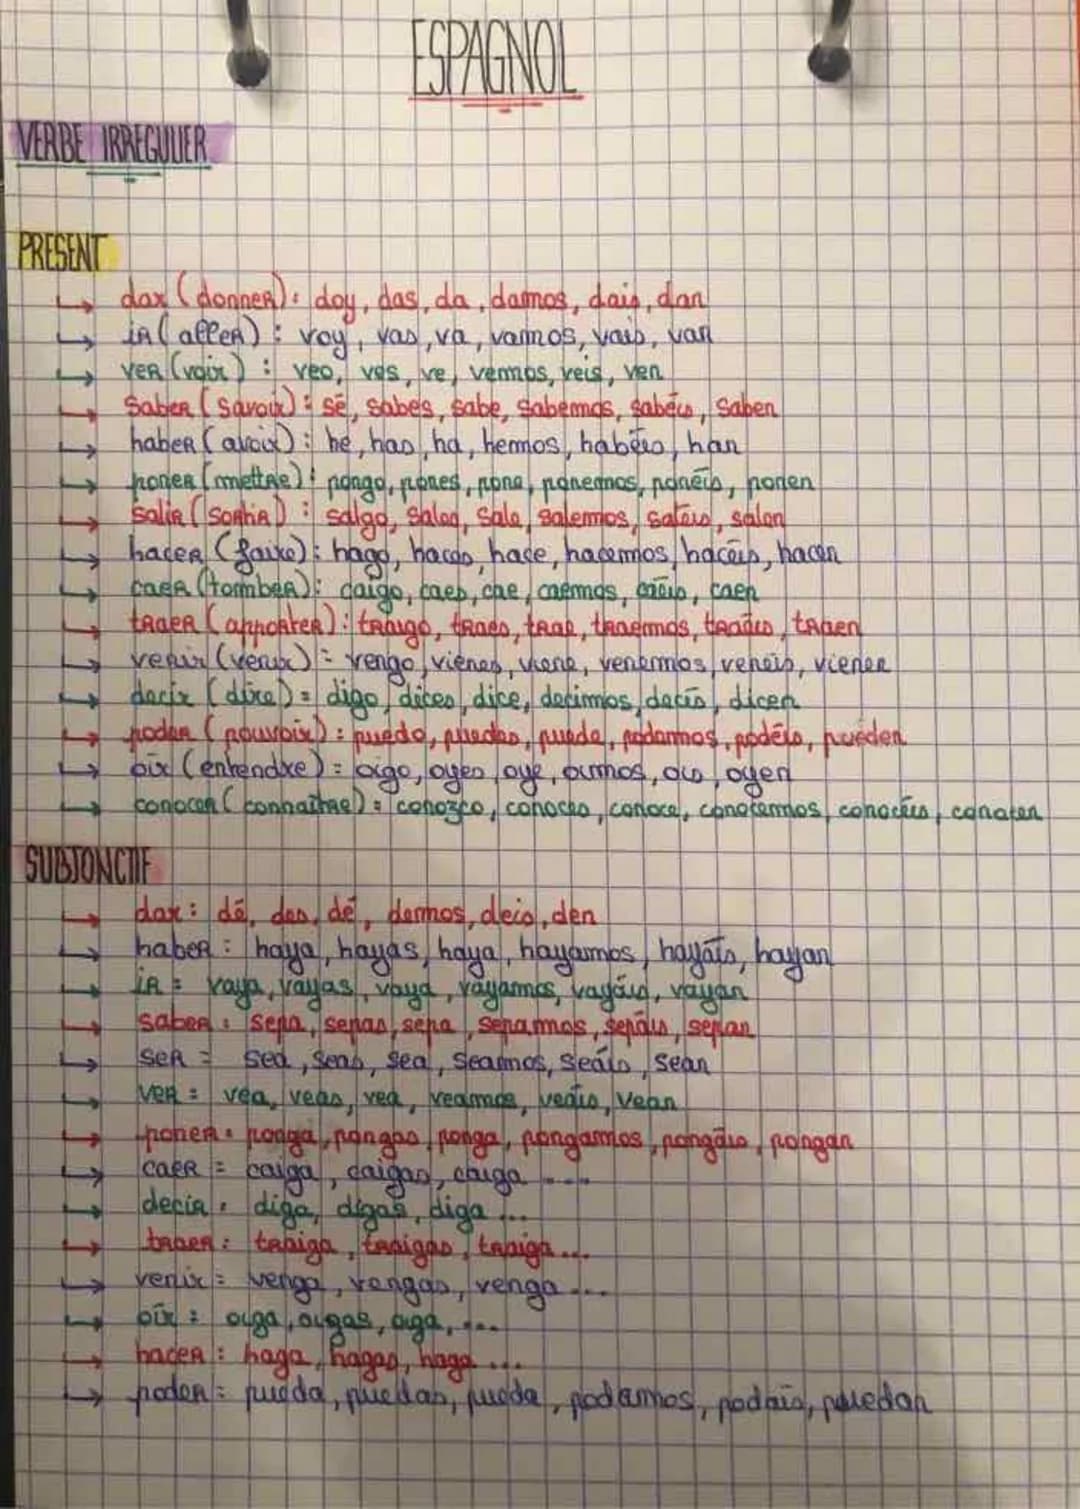 ESPAGNOL
VERBE IRREGULIER
PRESENT
↳ dar (donner) : doy, das, da, damos, dais, dan
↳ ir (aller) : voy, vas, va, vamos, vais, van
↳ ver (voir) : veo, ves, ve, vemos, veis, ven
↳ saber (savoir) : sé, sabes, sabe, sabemos, sabéis, saben
↳ haber (avoir) : he, has, ha, hemos, habéis, han
↳ poner (mettre) : pongo, pones, pone, ponemos, ponéis, ponen
↳ salir (sortir) : salgo, sales, sale, salemos, saléis, salen
↳ hacer (faire) : hago, haces, hace, hacemos, hacéis, hacen
↳ caer (tomber) : caigo, caes, cae, caemos, caéis, caen
↳ traer (apporter) : traigo, traes, trae, traemos, traéis, traen
↳ venir (venir) = vengo, vienes, viene, venemos, venéis, vienen
↳ decir (dire) = digo, dices, dice, decimos, decís, dicen
↳ poder (pouvoir) : puedo, puedes, puede, podemos, podéis, puéden
↳ oír (entendre) = oigo, oyes, oye, oímos, oís, oyen
↳ conocer (connaître) = conozco, conoces, conoce, conocemos, conocéis, conocen
SUBJONCTIF
↳ dar : dé, des, dé, demos, deis, den
↳ haber : haya, hayas, haya, hayamos, hayáis, hayan
↳ ir = vaya, vayas, vaya, vayamos, vayáis, vayan
↳ saber : sepa, sepas, sepa, sepamos, sepáis, sepan
↳ ser = sea, seas, sea, seamos, seáis, sean
↳ ver = vea, veas, vea, veamos, veáis, vean
↳ poner : ponga, pongas, ponga, pongamos, pongáis, pongan
↳ caer = caiga, caigas, caiga ....
↳ decir : diga, digas, diga ...
↳ traer : traiga, traigas, traiga ...
↳ venir = venga, vengas, venga ....
↳ oír : oiga, oigas, oiga, ....
↳ hacer : haga, hagas, haga ...
↳ poder = pueda, puedas, pueda, podamos, podaís, puedan